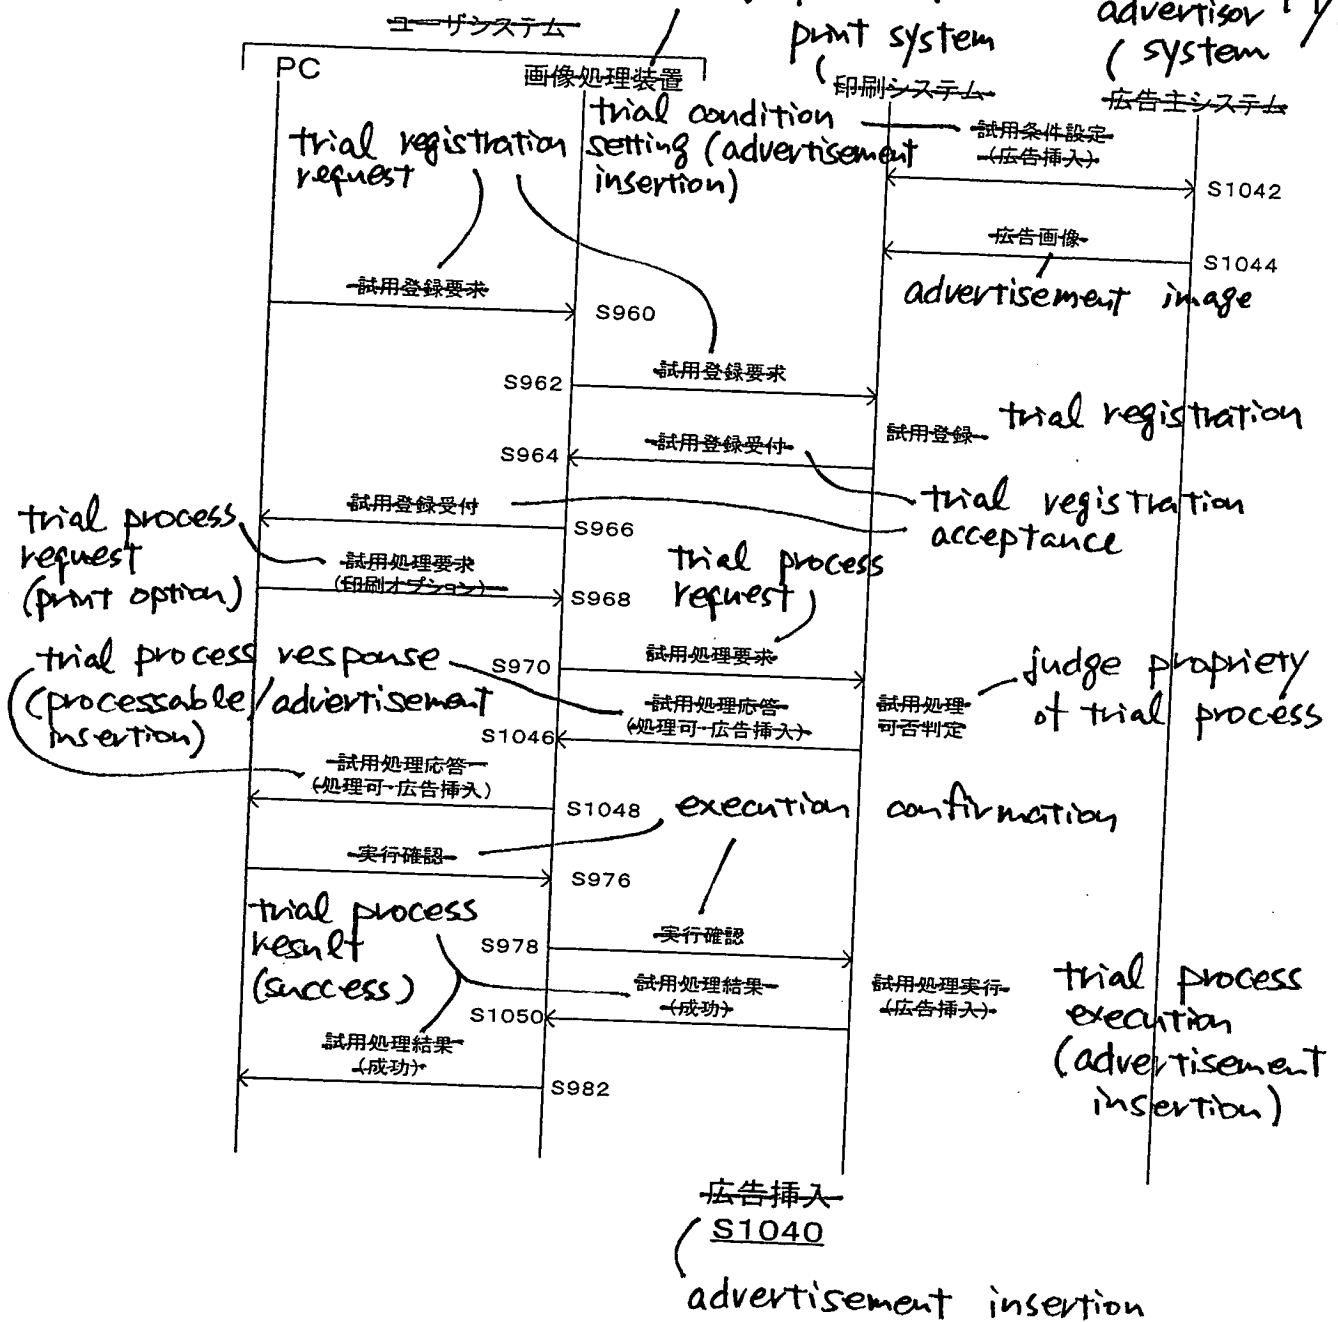 ユーザシステム
advertisor
print system
( system
PC
画像処理装置
( 印刷システム
広告主システム
trial condition
setting (advertisement
insertion)
試用条件設定
(広告挿入)
trial registration
request
S1042
広告画像
S1044
advertisement image
試用登録要求
S960
S962
試用登録要求
試用登録
trial registration
S964
試用登録受付
試用登録受付
S966
trial registration
acceptance
trial process
request
(print option)
試用処理要求
(印刷オプション)
S968
trial process
request
S970
試用処理要求
trial process response
(processable/advertisement
insertion)
試用処理応答
(処理可・広告挿入)
試用処理
可否判定
judge propriety
of trial process
S1046
試用処理応答
(処理可・広告挿入)
S1048
execution confirmation
実行確認
S976
trial process
result
(success)
S978
実行確認
試用処理結果
(成功)
試用処理実行
(広告挿入)
trial process
execution
(advertisement
insertion)
S1050
試用処理結果
(成功)
S982
広告挿入
S1040
advertisement insertion